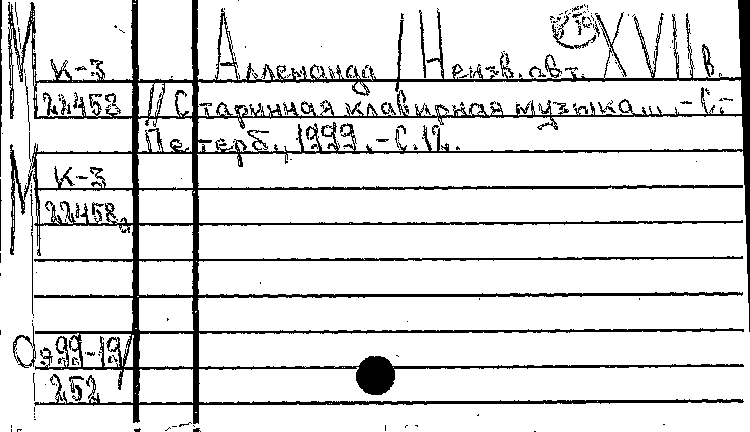 М К-3 Аллеманда / Неизв. авт. XVII в.
22458 // Старинная клавирная музыка... .-С.-
Петерб., 1999.-С.12.
М К-3
22458а
Оэ99-19/
252